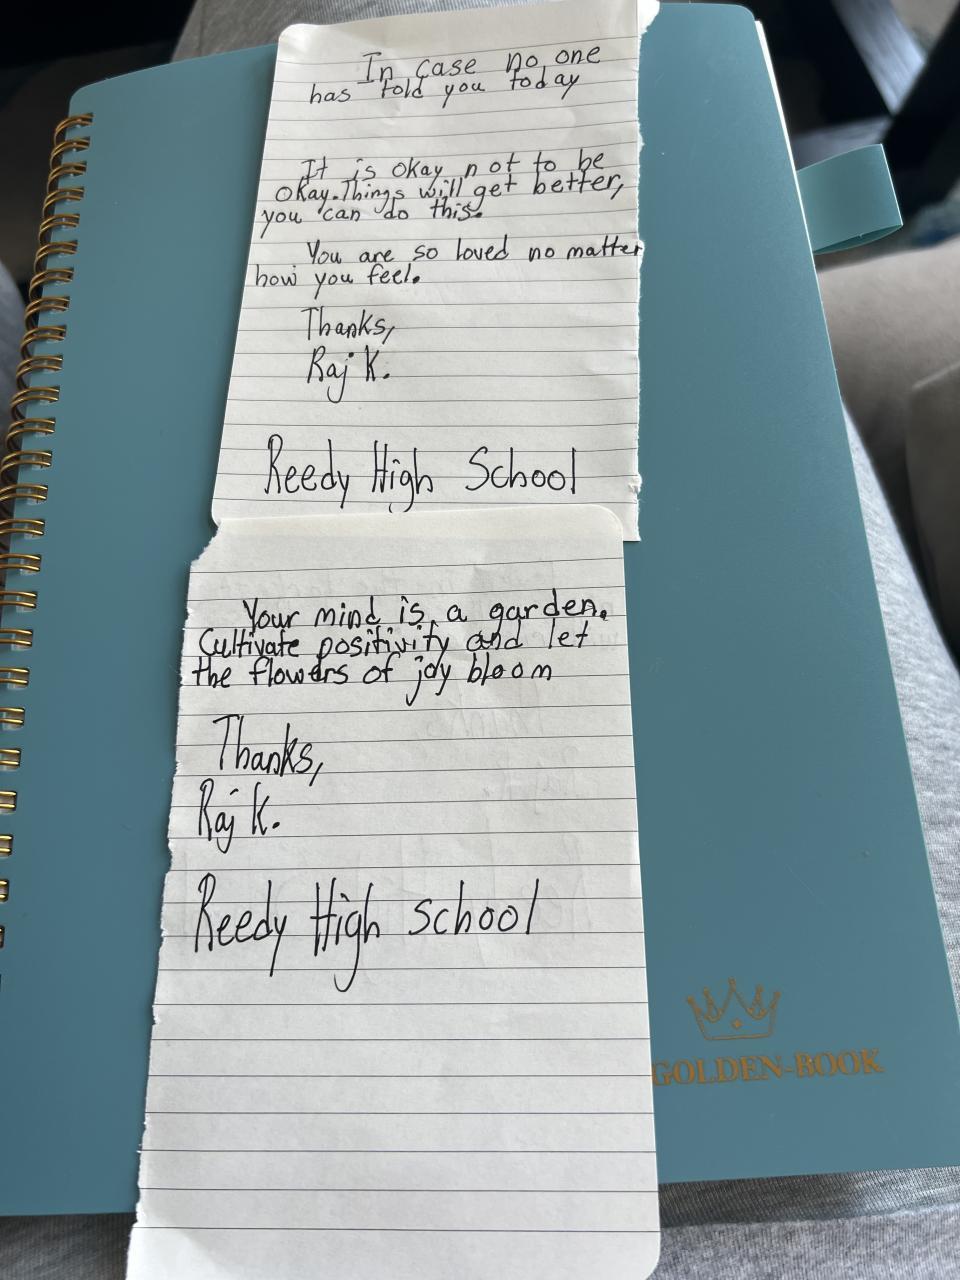 In case no one
has told you today
It is okay not to be
okay. Things will get better,
you can do this.
You are so loved no matter
how you feel.
Thanks,
Raj K.
Reedy High School
Your mind is a garden.
Cultivate positivity and let
the flowers of joy bloom
Thanks,
Raj K.
Reedy High school
GOLDEN-BOOK